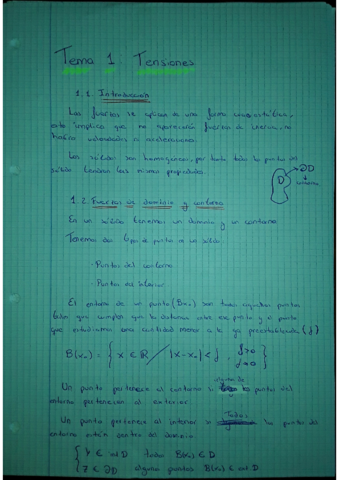 Tema 1: Tensiones
1.1 Introducción
Las fuerzas se aplican de una forma cuasiestática,
esto implica que no aparecerán fuerzas de inercia, no
habrá velocidades ni aceleraciones.
Los sólidos son homogéneos, por tanto todo los puntos del
sólido tendrán las mismas propiedades.
D ∂D
contorno
1.2 Fuerzas de dominio y contorno
En un sólido tenemos un dominio y un contorno
Tenemos dos tipos de puntos en un sólido:
· Puntos del contorno
· Puntos del interior
El entorno de un punto (Bx₀) son todos aquellos puntos
que cumplen que la distancia entre ese punto y el punto
que estudiamos una cantidad menor a la ya preestablecida (f)
B(x₀) = { x ∈ ℝ / |x-x₀| < f , f>0 f→0 }
Un punto pertenece al contorno si alguno de los puntos del
entorno pertenecen al exterior
Un punto pertenece al interior si Todos los puntos del
entorno están dentro del dominio
{ ∈ int D todo B(x₀) ∈ D
∈ ∂D alguno puntos B(x₀) ∈ ext D